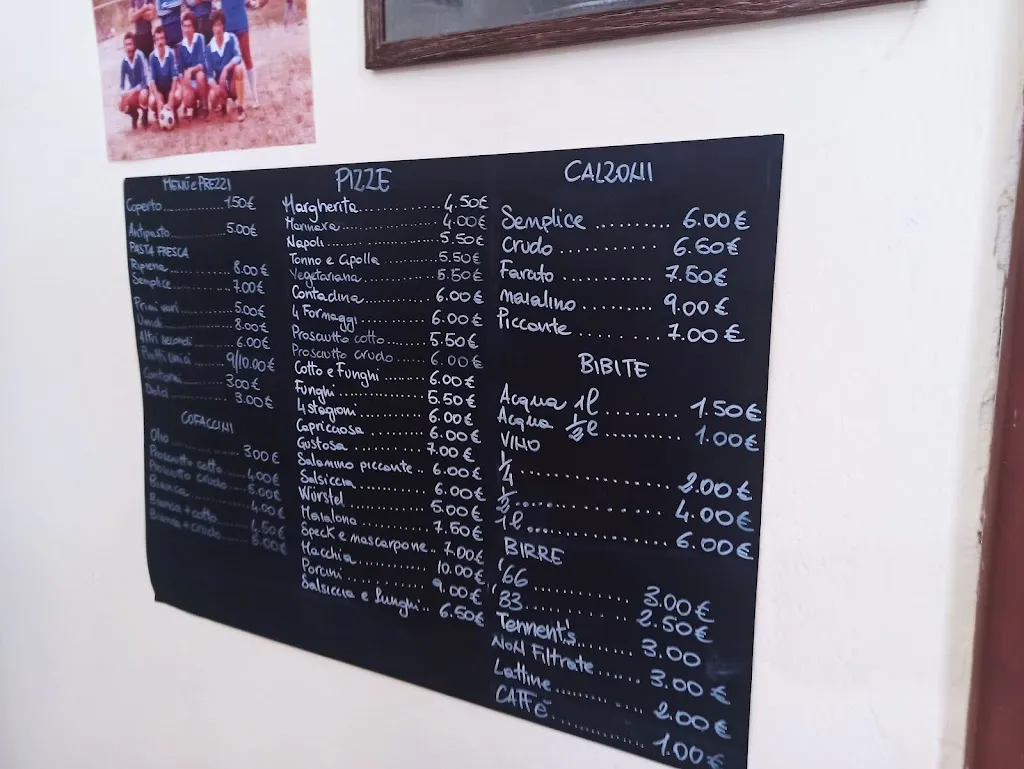 MENÙ e PREZZI
Coperto 1.50€
Antipasto 5.00€
PASTA FRESCA
Ripiena 8.00€
Semplice 7.00€
Primi vari 5.00€
Umidi 8.00€
Altri secondi 6.00€
Piatti unici 9/10.00€
Contorni 3.00€
Dolci 3.00€
COFACCINI
Olio 3.00€
Prosciutto cotto 4.00€
Prosciutto crudo 5.00€
Bianca 4.00€
Bianca + cotto 4.50€
Bianca + crudo
PIZZE
Margherita 4.50€
Marinara 4.00€
Napoli 5.50€
Tonno e cipolla 5.50€
Vegetariana 5.50€
Contadina 6.00€
4 Formaggi 6.00€
Prosciutto cotto 5.50€
Prosciutto crudo 6.00€
Cotto e Funghi 6.00€
Funghi 5.50€
4 stagioni 6.00€
Capricciosa 6.00€
Gustosa 7.00€
Salamino piccante 6.00€
Salsiccia 6.00€
Würstel 5.00€
Maialona 7.50€
Speck e mascarpone 7.00€
Macchia 10.00€
Porcini 9.00€
Salsiccia e funghi 6.50€
CALZONI
Semplice 6.00€
Crudo 6.60€
Farcito 7.50€
maialino 9.00€
Piccante 7.00€
BIBITE
Acqua 1l 1.50€
Acqua ½l 1.00€
VINO
¼ 2.00€
½ 4.00€
1l 6.00€
BIRRE
'66 3.00€
'33 2.50€
Tennent's 3.00
NON FILTRATE 3.00€
Lattine 2.00€
CAFFÈ 1.00€